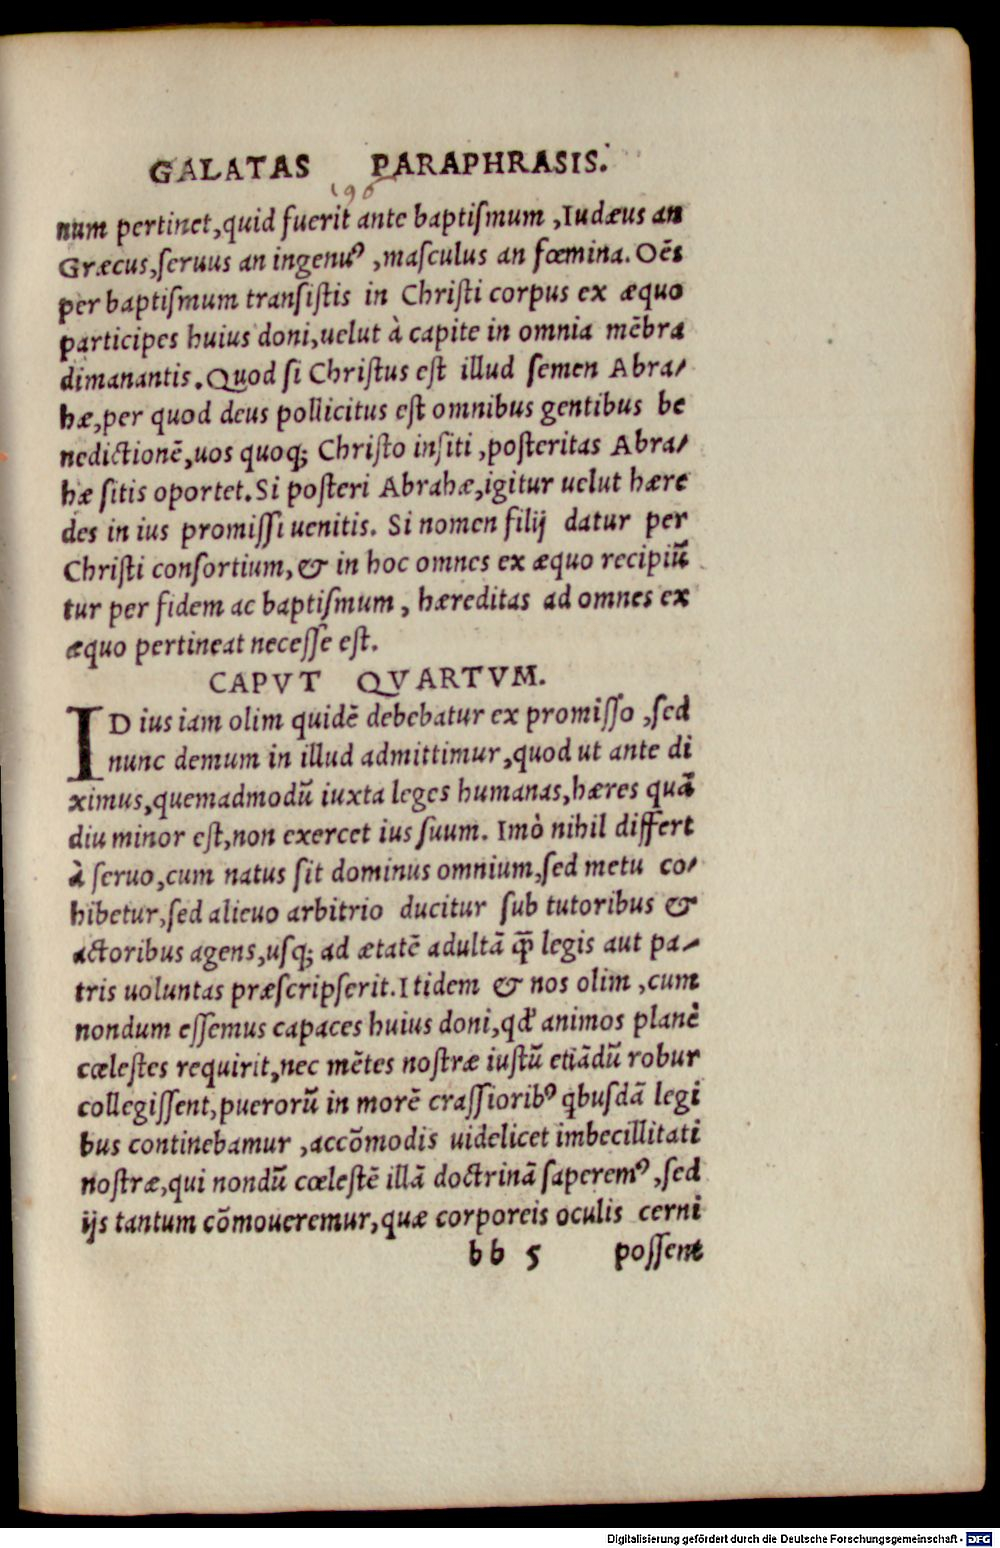 GALATAS PARAPHRASIS.
196
num pertinet, quid fuerit ante baptiſmum, Iudæus an
Græcus, ſeruus an ingenuꝰ, maſculus an fœmina. Oẽs
per baptiſmum tranſiſtis in Chriſti corpus ex æquo
participes huius doni, uelut à capite in omnia mẽbra
dimanantis. Quod ſi Chriſtus eſt illud ſemen Abra/
hæ, per quod deus pollicitus eſt omnibus gentibus be
nedictionẽ, uos quoq; Chriſto inſiti, poſteritas Abra/
hæ ſitis oportet. Si poſteri Abrahæ, igitur uelut hære
des in ius promiſſi uenitis. Si nomen filij datur per
Chriſti conſortium, & in hoc omnes ex æquo recipiũ
tur per fidem ac baptiſmum, hæreditas ad omnes ex
æquo pertineat neceſſe eſt.
CAPVT QVARTVM.
ID ius iam olim quidẽ debebatur ex promiſſo, ſed
nunc demum in illud admittimur, quod ut ante di
ximus, quemadmodũ iuxta leges humanas, hæres quã
diu minor eſt, non exercet ius ſuum. Imò nihil differt
à ſeruo, cum natus ſit dominus omnium, ſed metu co/
hibetur, ſed alieuo arbitrio ducitur ſub tutoribus &
actoribus agens, uſq; ad ætatẽ adultã q̃ legis aut pa/
tris uoluntas præſcripſerit. Itidem & nos olim, cum
nondum eſſemus capaces huius doni, qd' animos planè
cœleſtes requirit, nec mẽtes noſtræ iuſtũ etiãdũ robur
collegiſſent, puerorũ in morẽ craſſioribꝰ qbuſdã legi
bus continebamur, accõmodis uidelicet imbecillitati
noſtræ, qui nondũ cœleſtẽ illã doctrinã ſaperemꝰ, ſed
ijs tantum cõmoueremur, quæ corporeis oculis cerni
bb 5 poſſent
Digitalisierung gefördert durch die Deutsche Forschungsgemeinschaft - DFG